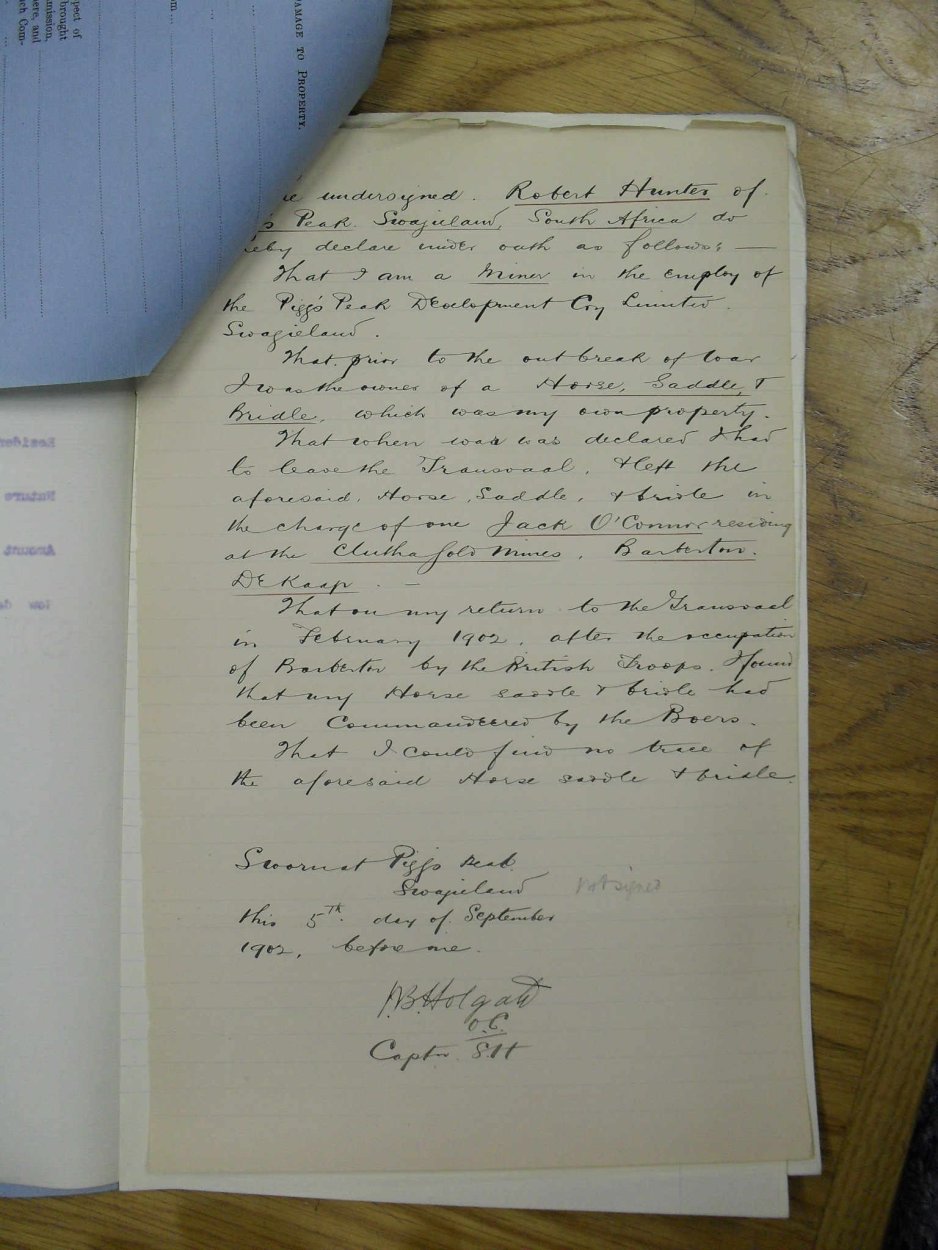 DAMAGE TO PROPERTY.
pect of
brought
mission,
ere, and
ch Com-
om
undersigned. Robert Hunter of
's Peak. Swazieland, South Africa do
eby declare under oath as follows: —
That I am a Miner in the employ of
the Pigg's Peak Development Coy Limited.
Swazieland.
That prior to the outbreak of war
I was the owner of a Horse, Saddle, &
Bridle, which was my own property.
That when war was declared I had
to leave the Transvaal, & left the
aforesaid, Horse, Saddle, & bridle in
the charge of one Jack O'Connor residing
at the Clutha Gold Mines, Barberton.
De Kaap. —
That on my return to the Transvaal
in February 1902, after the occupation
of Barberton by the British Troops. I found
that my Horse saddle & bridle had
been Commandeered by the Boers.
That I could find no trace of
the aforesaid Horse saddle & bridle.
Sworn at Pigg's Peak
Swazieland
not signed
this 5th. day of September
1902, before me.
B. Holgate
O.C.
Captn. S.H
Residen
Nature
Amount
How de